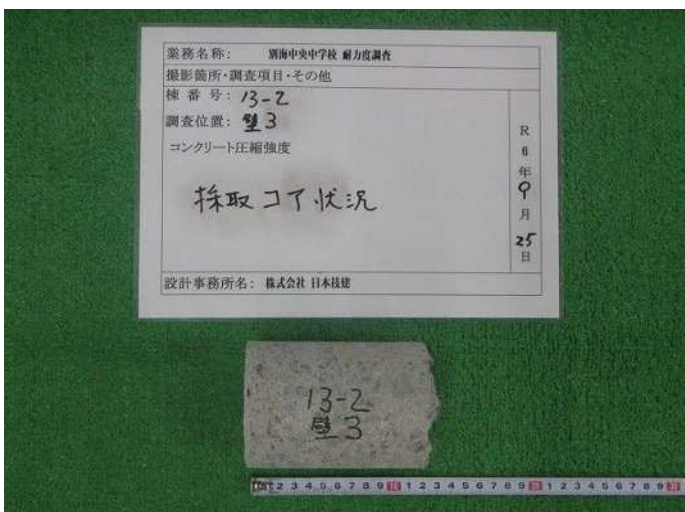 業務名称: 別海中央中学校 耐力度調査
撮影箇所・調査項目・その他
棟番号: 13-2
調査位置: 壁3
コンクリート圧縮強度
採取コア状況
R
6
年
9
月
25
日
設計事務所名: 株式会社 日本技建
13-2
壁3
1 2 3 4 5 6 7 8 9 10 1 2 3 4 5 6 7 8 9 20 1 2 3 4 5 6 7 8 9 30